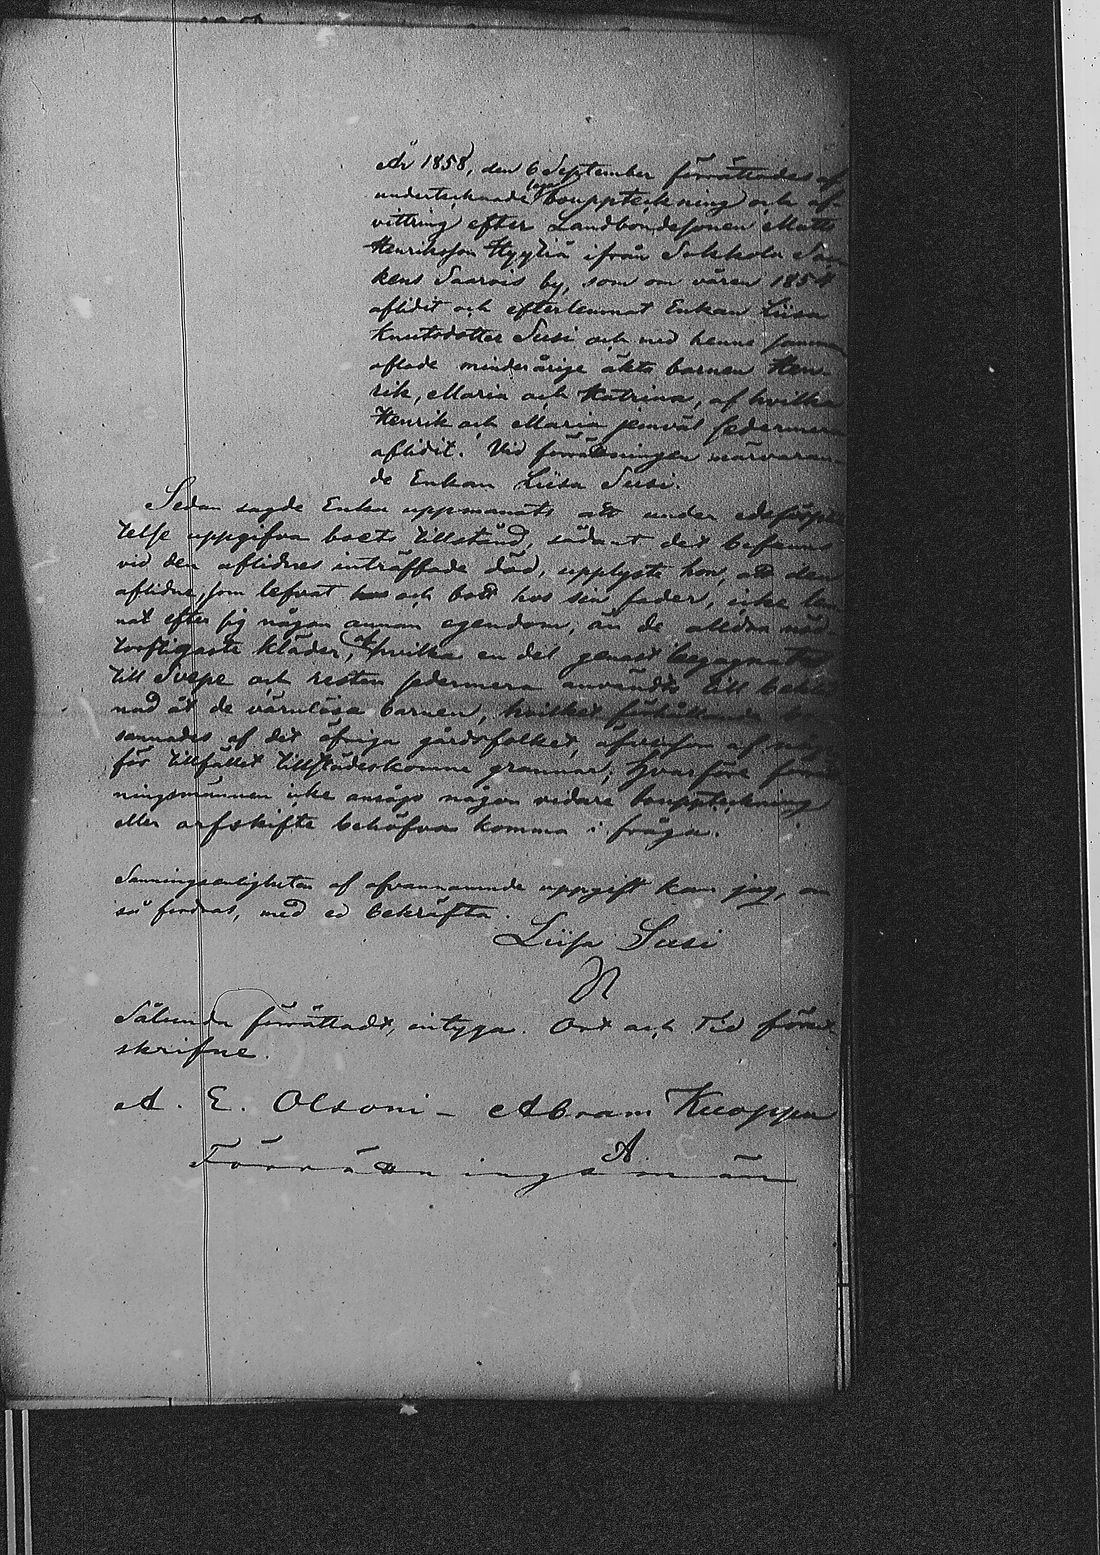 År 1858, den 6 September förrättades af
undertecknade laga bouppteckning och af-
vittring efter Landbondesonen Matts
Henriksson Hyytiä ifrån Sakkola Soc-
kens Saarois by, som om våren 1854
aflidit och efterlemnat Enkan Liisa
Knutsdotter Susi och med henne samman
aflade minderårige äkta barnen Hen-
rik, Maria och Katrina, af hvilka
Henrik och Maria jemväl sedermera
aflidit. Vid förrättningen närvaran-
de Enkan Liisa Susi.
Sedan sagde Enka uppmanats att under edsförplik
telse uppgifva boets tillstånd, sådant det befanns
vid den aflidnes inträffade död, upplyste hon, att den
aflidne, som lefvat och bott hos sin fader, icke lem
nat efter sig någon annan egendom, än de alldra nöd-
torftigaste kläder, af hvilka en del genast begagnats
till Svepe och resten sedermera användts till bekläd
nad åt de värnlösa barnen, hvilket förhållande be-
sannades af det öfriga gårdsfolket, äfvensom af någre
för tillfället tillstädeskomne grannar; hvarföre förrätt
ningsmännen icke ansågo någon vidare bouppteckning
eller arfskifte behöfva komma i fråga.
Sanningsenligheten af ofvannamnde uppgift kan jag, om
så fordras, med ed bekräfta.
Liisa Susi
Sålunda förrättadt, intyga. Ort och Tid förut
skrifne.
A. E. Olsoni - Abram Kuoppa
A.
Förrättningsmän